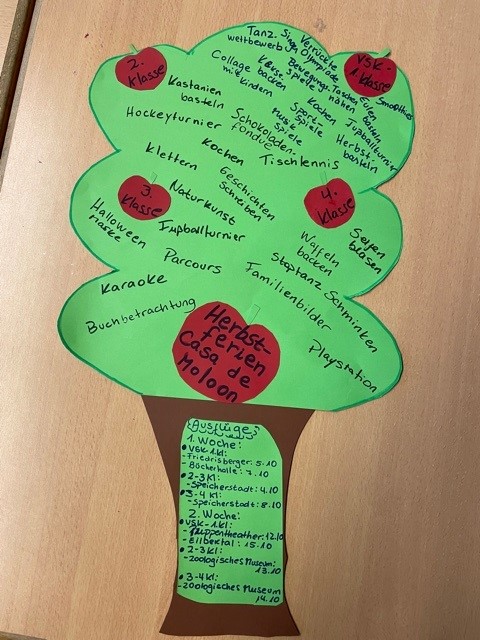 Tanz-
wettbewerb
Singen
Verrückte
Olympiade
VSK-
1. Klasse
2.
Klasse
Collage
mit Kindern
Kekse
backen
Bewegungs-
spiele
Taschen
nähen
Eulen
basteln
Smoothies
Kastanien
basteln
Hockeyturnier
Schokoladen-
fondue
Musik
spiele
Sport-
spiele
Kochen
Fußballturnier
Herbst-
basteln
Klettern
Kochen
Tischtennis
3.
Klasse
Naturkunst
Geschichten
schreiben
4.
Klasse
Halloween
Maske
Fußballturnier
Waffeln
backen
Seifen
blasen
Parcours
Stoptanz
Karaoke
Familienbilder
Schminken
Buchbetrachtung
Playstation
Herbst-
ferien
Casa de
Moloon
Ausflüge:
1. Woche:
VSK-1.Kl:
- Friedrisberger: 5.10
- Böckerhalle: 7.10
2-3 Kl:
- Speicherstadt: 4.10
3-4 Kl:
- Speicherstadt: 8.10
2. Woche:
VSK-1.Kl:
- Puppentheather: 12.10
- Eilbektal: 15.10
2-3 Kl:
- zoologisches Museum:
13.10
3-4 Kl:
- zoologisches Museum
14.10